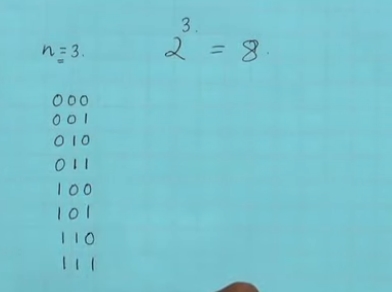 n = 3. 2³· = 8.
000
001
010
011
100
101
110
111